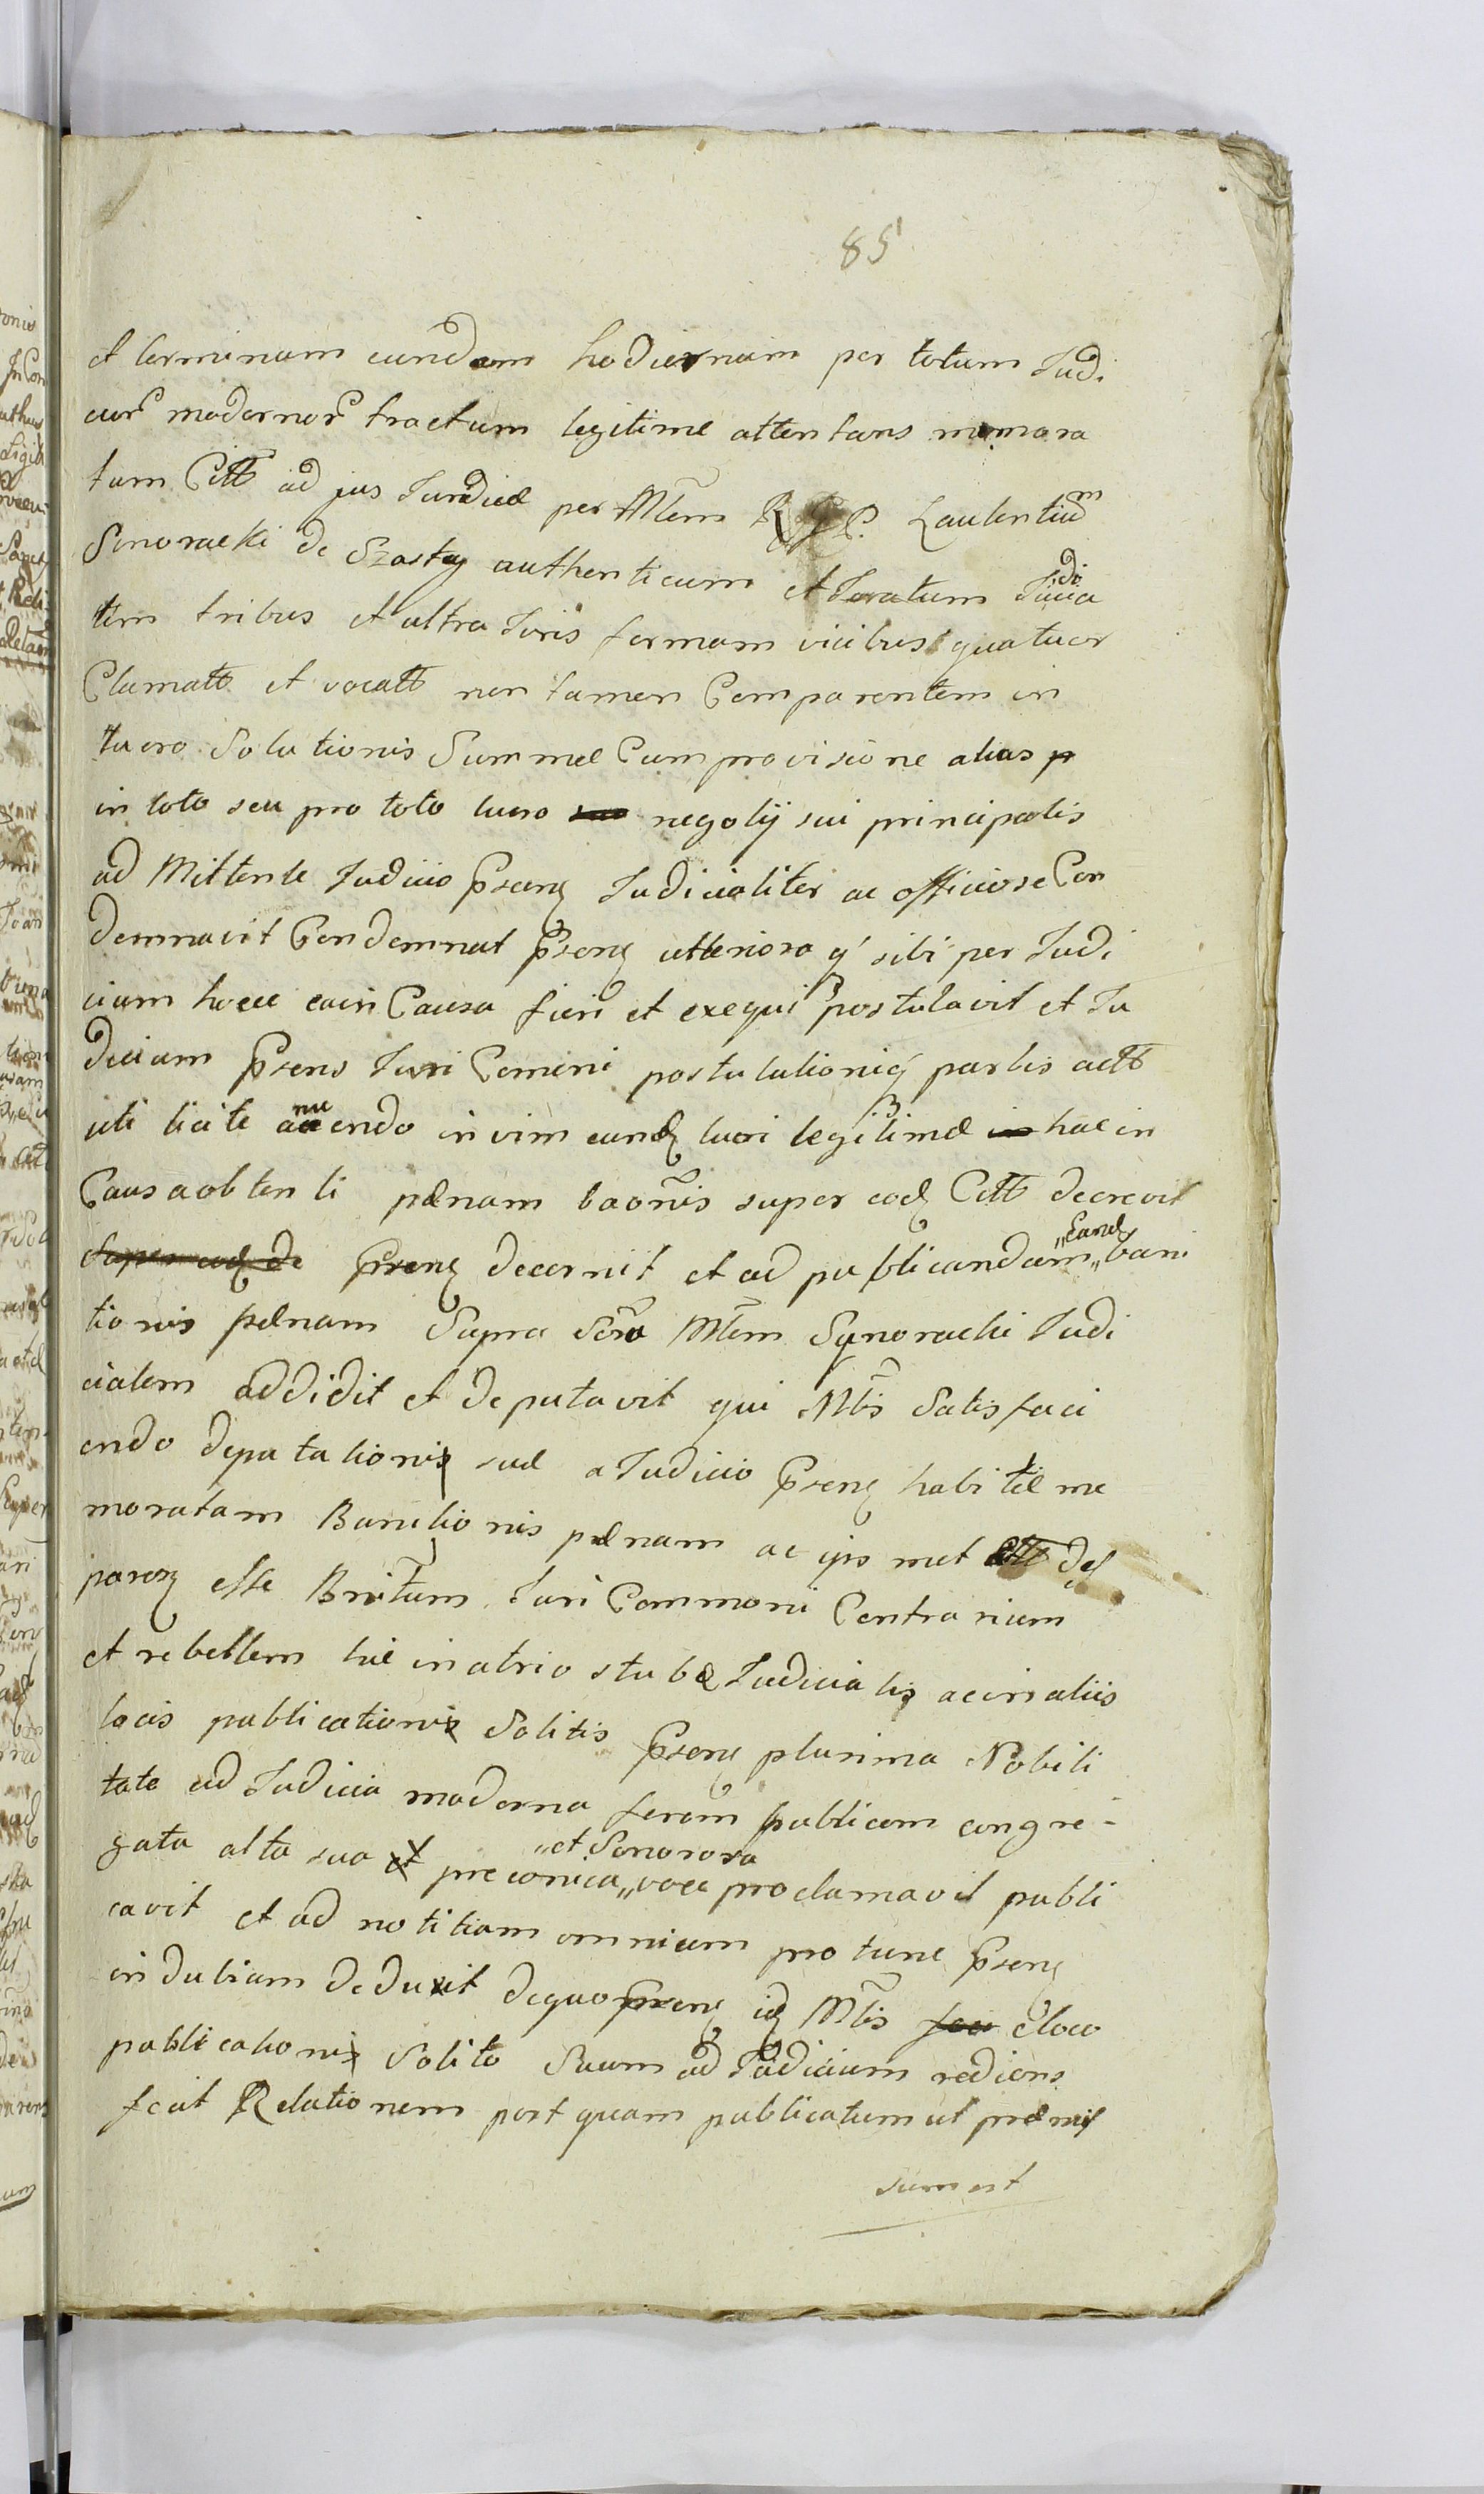 85
et terminum eundem hodiernum per totum Judi
cior modernor tractum legitime attentans memora
tum Citt ad jus Juridice per Mtem R. G. P. Laulentium
Sonoracki de Szosty authenticum et Juratum Judicia
tem tribus et ultra Juris formam vicibus quatuor
Clamatt et vocatt non tamen Comparentem in
lucro Solutionis Summæ Cum provisione alias p
in toto seu pro toto lucro suo negotij sui principalis
ad Mittente Judicio Psens Judicialiter ac officiose Con
demnavit Condemnat Psens ulteriora q sibi per Judi
cium hocce ea in Causa fieri et exequi postulavit et Ju
dicium Psens Juri Comuni postulationiq partis actt
uti licite annuendo in vim eund lucri legitime in hac in
Causa obtenti pænam baonis super eod Citt decrevit
super eod de Psens decernit et ad publicandam „eand„ bani
tionis pænam Supra Scrto Mtem Synoracki Judi
cialem addidit et deputavit qui Mtis Satisfaci
endo deputationis suæ a Judicio Psens habitæ me
moratam Banitionis pænam ac ips met Citt des
paren esse Bnitum Juri Commoni Contrarium
et rebellem hic in atrio stubæ Judicialis ac in aliis
locis publicationis Solitis Psens plurima Nobili
tate ad Judicia moderna ferem publicam congre-
gata alta sua et preconica „et Sonorosa„ voce proclamavit publi
cavit et ad notitiam omnium pro tunc Psens
indubiam deduxit de quo Psens id Mtis fec e loco
publicationis Solito Suum ad Judicium rediens
fecit Relationem post quam publicatum ut præmis
sum est